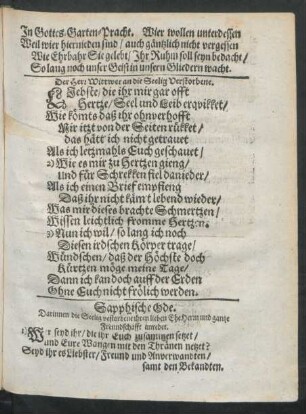 In Gottes-Garten-Pracht. Wier wollen unterdessen
Weil wier hiernieden sind/ auch gäntzlich nicht vergessen
Wie Ehrbahr Sie gelebt/ Ihr Ruhm soll seyn bedacht/
So lang noch unser Geist in unsern Gliedern wacht.
Der Herr Wittwer an die Seelig Verstorbene.
Liebste/ die ihr mir gar offt
Hertze/ Seel und Leib erqvikket/
Wie kömts daß ihr ohnverhofft
Mir itzt von der Seiten rükket/
das hätt ich nicht getrauet
Als ich letzmahls Euch geschauet/
2) Wie es mir zu Hertzen gieng/
und für Schrekken fiel danieder/
Als ich einen Brief empfieng
Daß ihr nicht kämt lebend wieder/
Was mir dieses brachte Schmertzen/
Wissen leichtlich fromme Hertzen.
3) Nun ich wil/ so lang ich noch
Diesen irdschen Körper trage/
Wündschen/ daß der Höchste doch
Kürtzen möge meine Tage/
Dann ich kan doch auff der Erden
Ohne Euch nicht frölich werden.
Sapphische Ode.
Darinnen die Seelig verstorbene ihren lieben EheHerrn und gantze
Freundschafft anredet.
1) Ihr seyd ihr/ die ihr Euch zusammen setzet/
und Eure Wangen mit den Thränen netzet?
Seyd ihr es Liebster/ Freund und Anverwandten/
samt den Bekandten.